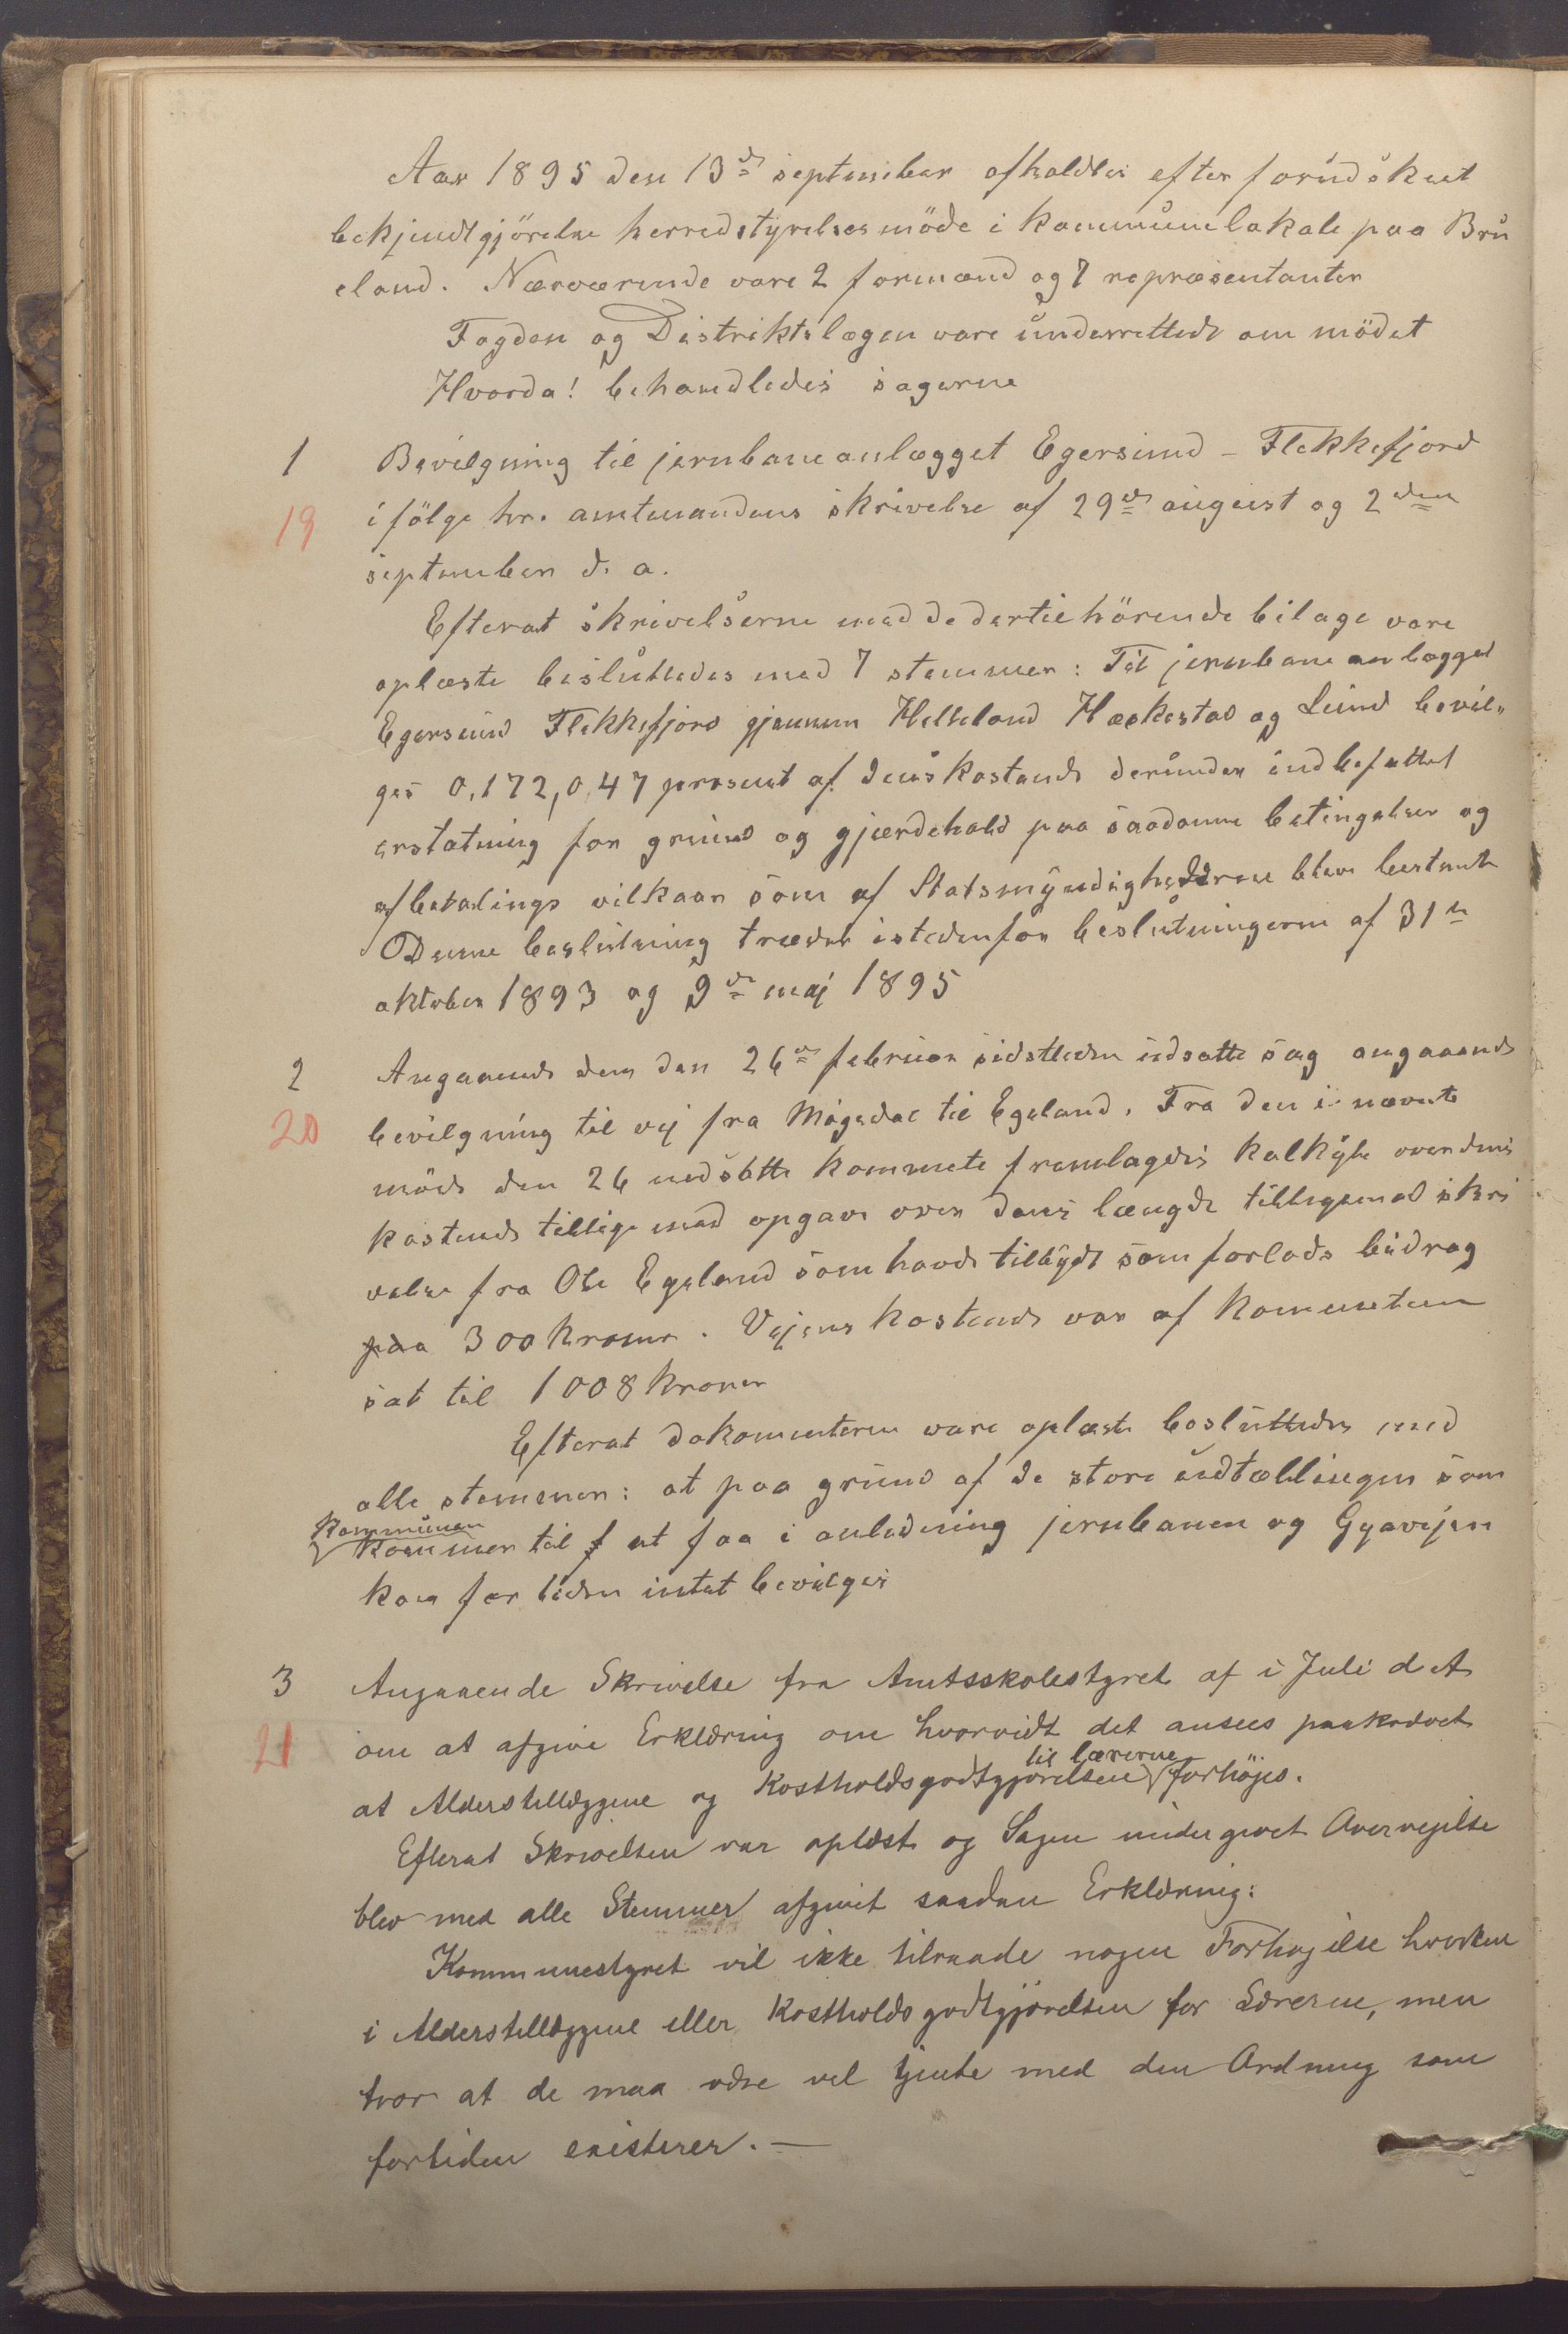 Aar 1895 den 13de september afholdtes efter forudskeet
bekjendtgjörelse herredstyrelsesmöde i kommunelokale paa Bru
eland. Nærværende vare 2 formænd og 7 repræsentanter
Fogden og Distriktslægen vare underrettede om mödet
Hvorda! behandledes sagerne
1 Bevilgning til jernbaneanlægget Egersund - Flekkefjord
19 ifölge hr. amtmandens skrivelse af 29de august og 2den
september d. a.
Efterat skrivelserne med de dertil hörende bilage vare
oplæste besluttedes med 7 stemmer: Til jernbaneanlægget
Egersund Flekkefjord gjennem Helleland Hæskestad og Lund bevil„
ges 0,172,0,47 prosent af dens kostende derunder indbefattet
erstatning for grund og gjærdehold paa saadanne betingelser og
afbetalings vilkaar som af Statsmyndighederne blive bestemt
Denne beslutning træder istedenfor beslutningerne af 31te
oktober 1893 og 9de maj 1895
2 Angaaende den den 26de februar sidstleden udsatte sag angaaende
20 bevilgning til vej fra Mögedal til Egeland. Fra den i nævnte
möde den 26 nedsatte kommete fremlagdes kalkyle over dens
kostende tillige med opgave over dens længde tilligemed skri
velse fra Ole Egeland som havde tilbydt som forlods bidrag
paa 300 kroner. Vejens kostende var af kommeteen
sat til 1008 kroner
Efterat dokomenterne vare oplæste besluttedes med
alle stemmer: at paa grund af de store udtællinger som
kommunen
kommer til f at faa i anledning jernbanen og Gyavejen
kan for tiden intet bevilges
3 Angaaende Skrivelse fra Amtsskolestyret af i Juli d. A
21 om at afgive Erklæring om hvorvidt det ansees paakrævet
til lærerne
at Alderstillæggene og Kostholdsgodtgjörelsen forhöjes.
Efterat Skrivelsen var oplæst og Sagen undergivet Overvejelse
blev med alle Stemmer afgivet saadan Erklæring:
Kommunestyret vil ikke tilraade nogen Forhøjelse hverken
i Alderstillæggene eller Kostholdsgodtgjörelsen for Lærerne, men
tror at de maa være vel tjente med den Ordning som
fortiden existerer. —